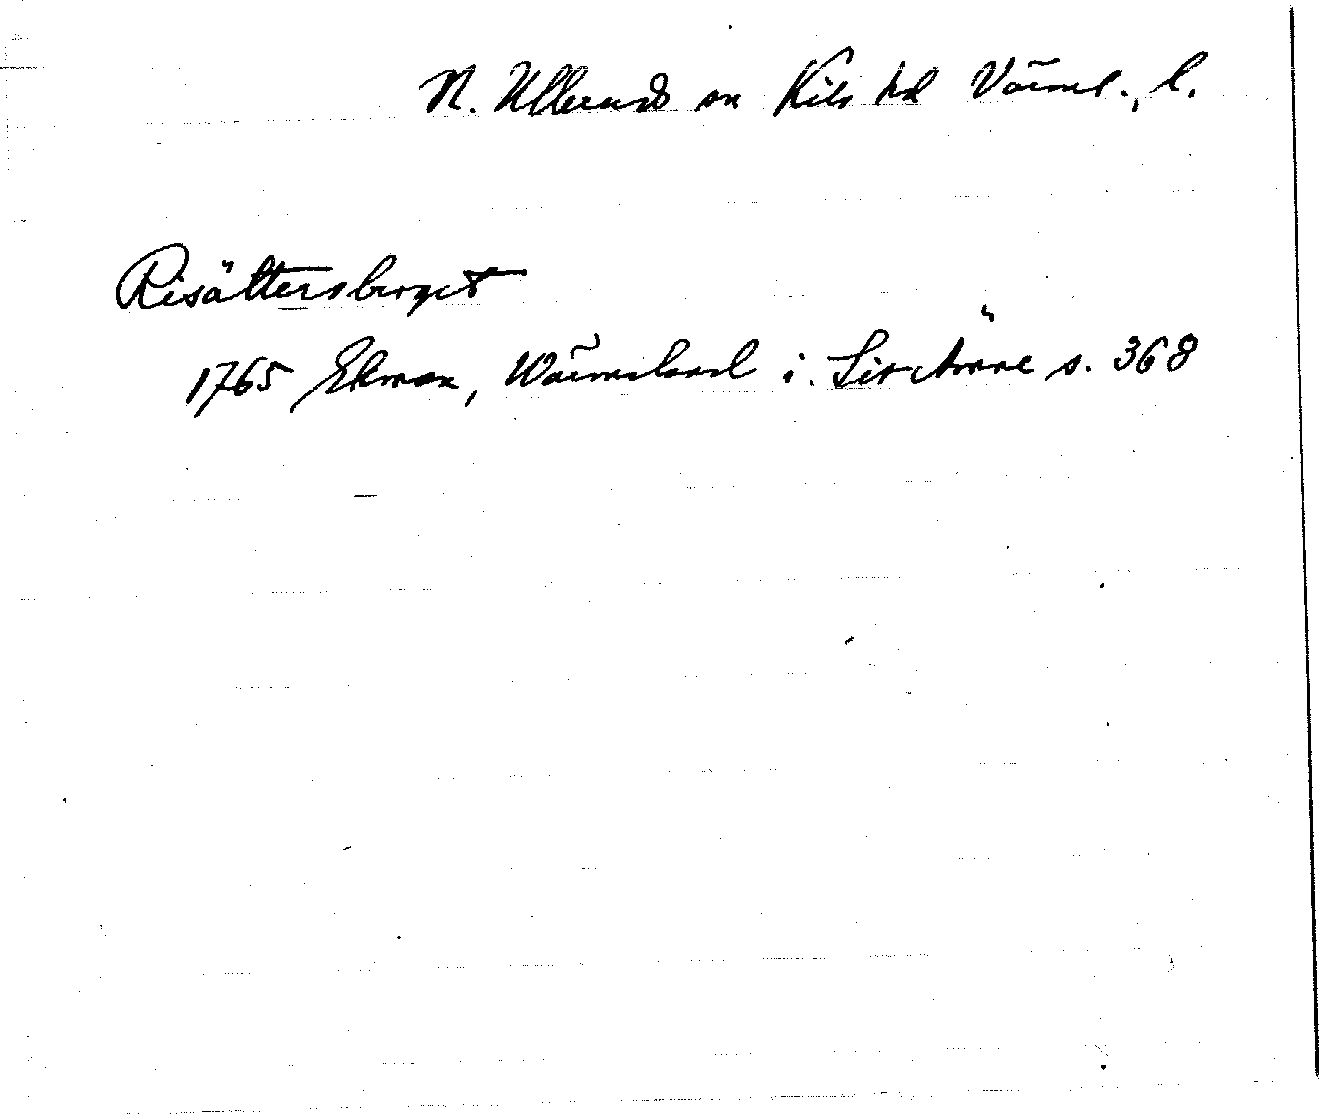 N. Ulleruds sn Kils hd Värml. l.
Risättersberget
1765 Ekman, Wärmeland i. Sitt Ämne s. 368